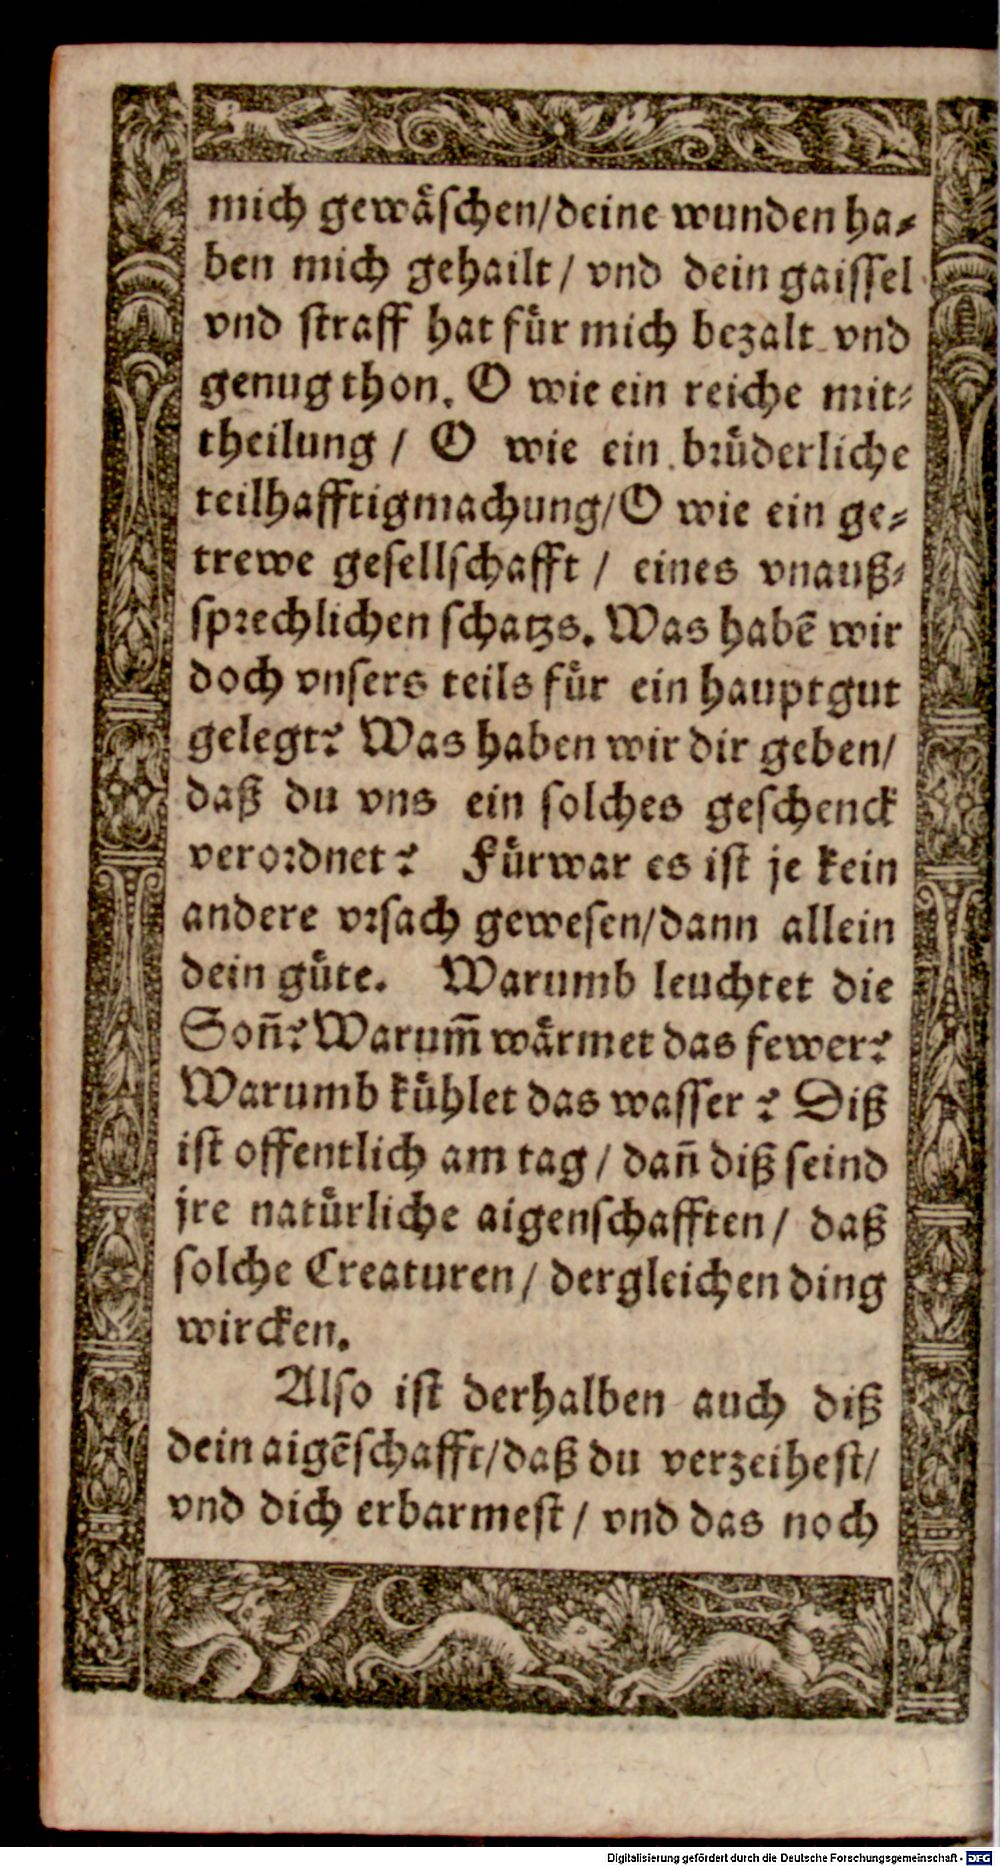 mich gewaͤſchen/deine wunden ha⸗
ben mich gehailt / vnd dein gaiſſel
vnd ſtraff hat fuͤr mich bezalt vnd
genug thon. O wie ein reiche mit⸗
theilung / O wie ein bꝛuͤderliche
teilhafftigmachung/O wie ein ge⸗
trewe geſellſchafft / eines vnauß⸗
ſpꝛechlichen ſchatzs. Was habẽ wir
doch vnſers teils fuͤr ein hauptgut
gelegt? Was haben wir dir geben/
daß du vns ein ſolches geſchenck
veroꝛdnet? Fuͤrwar es iſt je kein
andere vꝛſach geweſen/dann allein
dein guͤte. Warumb leuchtet die
Soñ? Warum̃ waͤrmet das fewer?
Warumb kuͤhlet das waſſer? Diß
iſt offentlich am tag / dañ diß ſeind
jre natuͤrliche aigenſchafften / daß
ſolche Creaturen / dergleichen ding
wircken.
Alſo iſt derhalben auch diß
dein aigẽſchafft/daß du verzeiheſt/
vnd dich erbarmeſt / vnd das noch
Digitalisierung gefördert durch die Deutsche Forschungsgemeinschaft - DFG